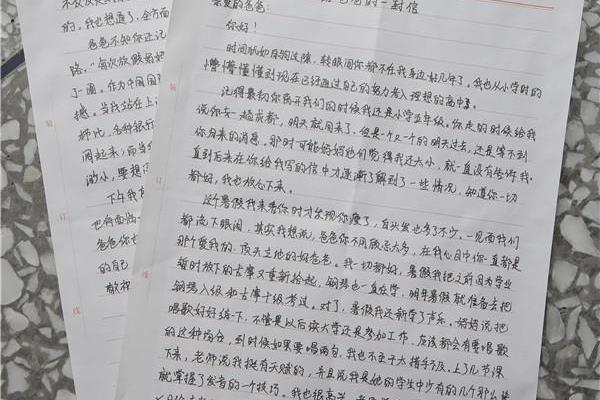 爸爸的一封信
亲爱的爸爸:
你好!
时间犹如白驹过隙,转眼间你都不在我身边好几年了。我也从小学时的
懵懵懂懂到现在已经通过自己的努力考入理想的高中。
记得最初你离开我们的时候我还是小学五年级。你走的时候给我
说你去一趟成都,明天就回来了,但是一个又一个的明天过去,还是等不到
你回来的消息。那时可能妈妈他们觉得我还太小,就一直没有告诉我。
直到后来在你给我写的信中才逐渐了解到了一些情况,知道你一切
都好,我也放心下来。
这个暑假我来看你时才发现你瘦了,白头发也多了不少。一见面我们
都流下眼泪,其实我想说,爸爸你不用顾虑太多,在我心目中你一直都是
那个爱我的,顶天立地的好爸爸。我一切都好,暑假我把之前因为学业
暂时放下的古筝又重新拾起,钢琴也一直在学,明年暑假就准备去把
钢琴八级和古筝十级考过。对了,暑假我还新学了声乐。妈妈说把
唱歌好好练一下,不管是以后读大学还是参加工作,应该都会有要唱歌
的这种场合,到时候如果要唱两句,我也不至于太措手不及。上了几节课
下来,老师说我挺有天赋的,并且说我是她的学生中少有的几个那么快
就掌握了发音的一个技巧。我也很高兴
的。我也想通了,全方面
爸爸不知你还记
路。"每次放假妈妈
了一遍。作为中国
撼。当我站在上
师比,各种银行
闻起来;而当
的小,要想
下午我
也有面临
爸爸你也
的自己